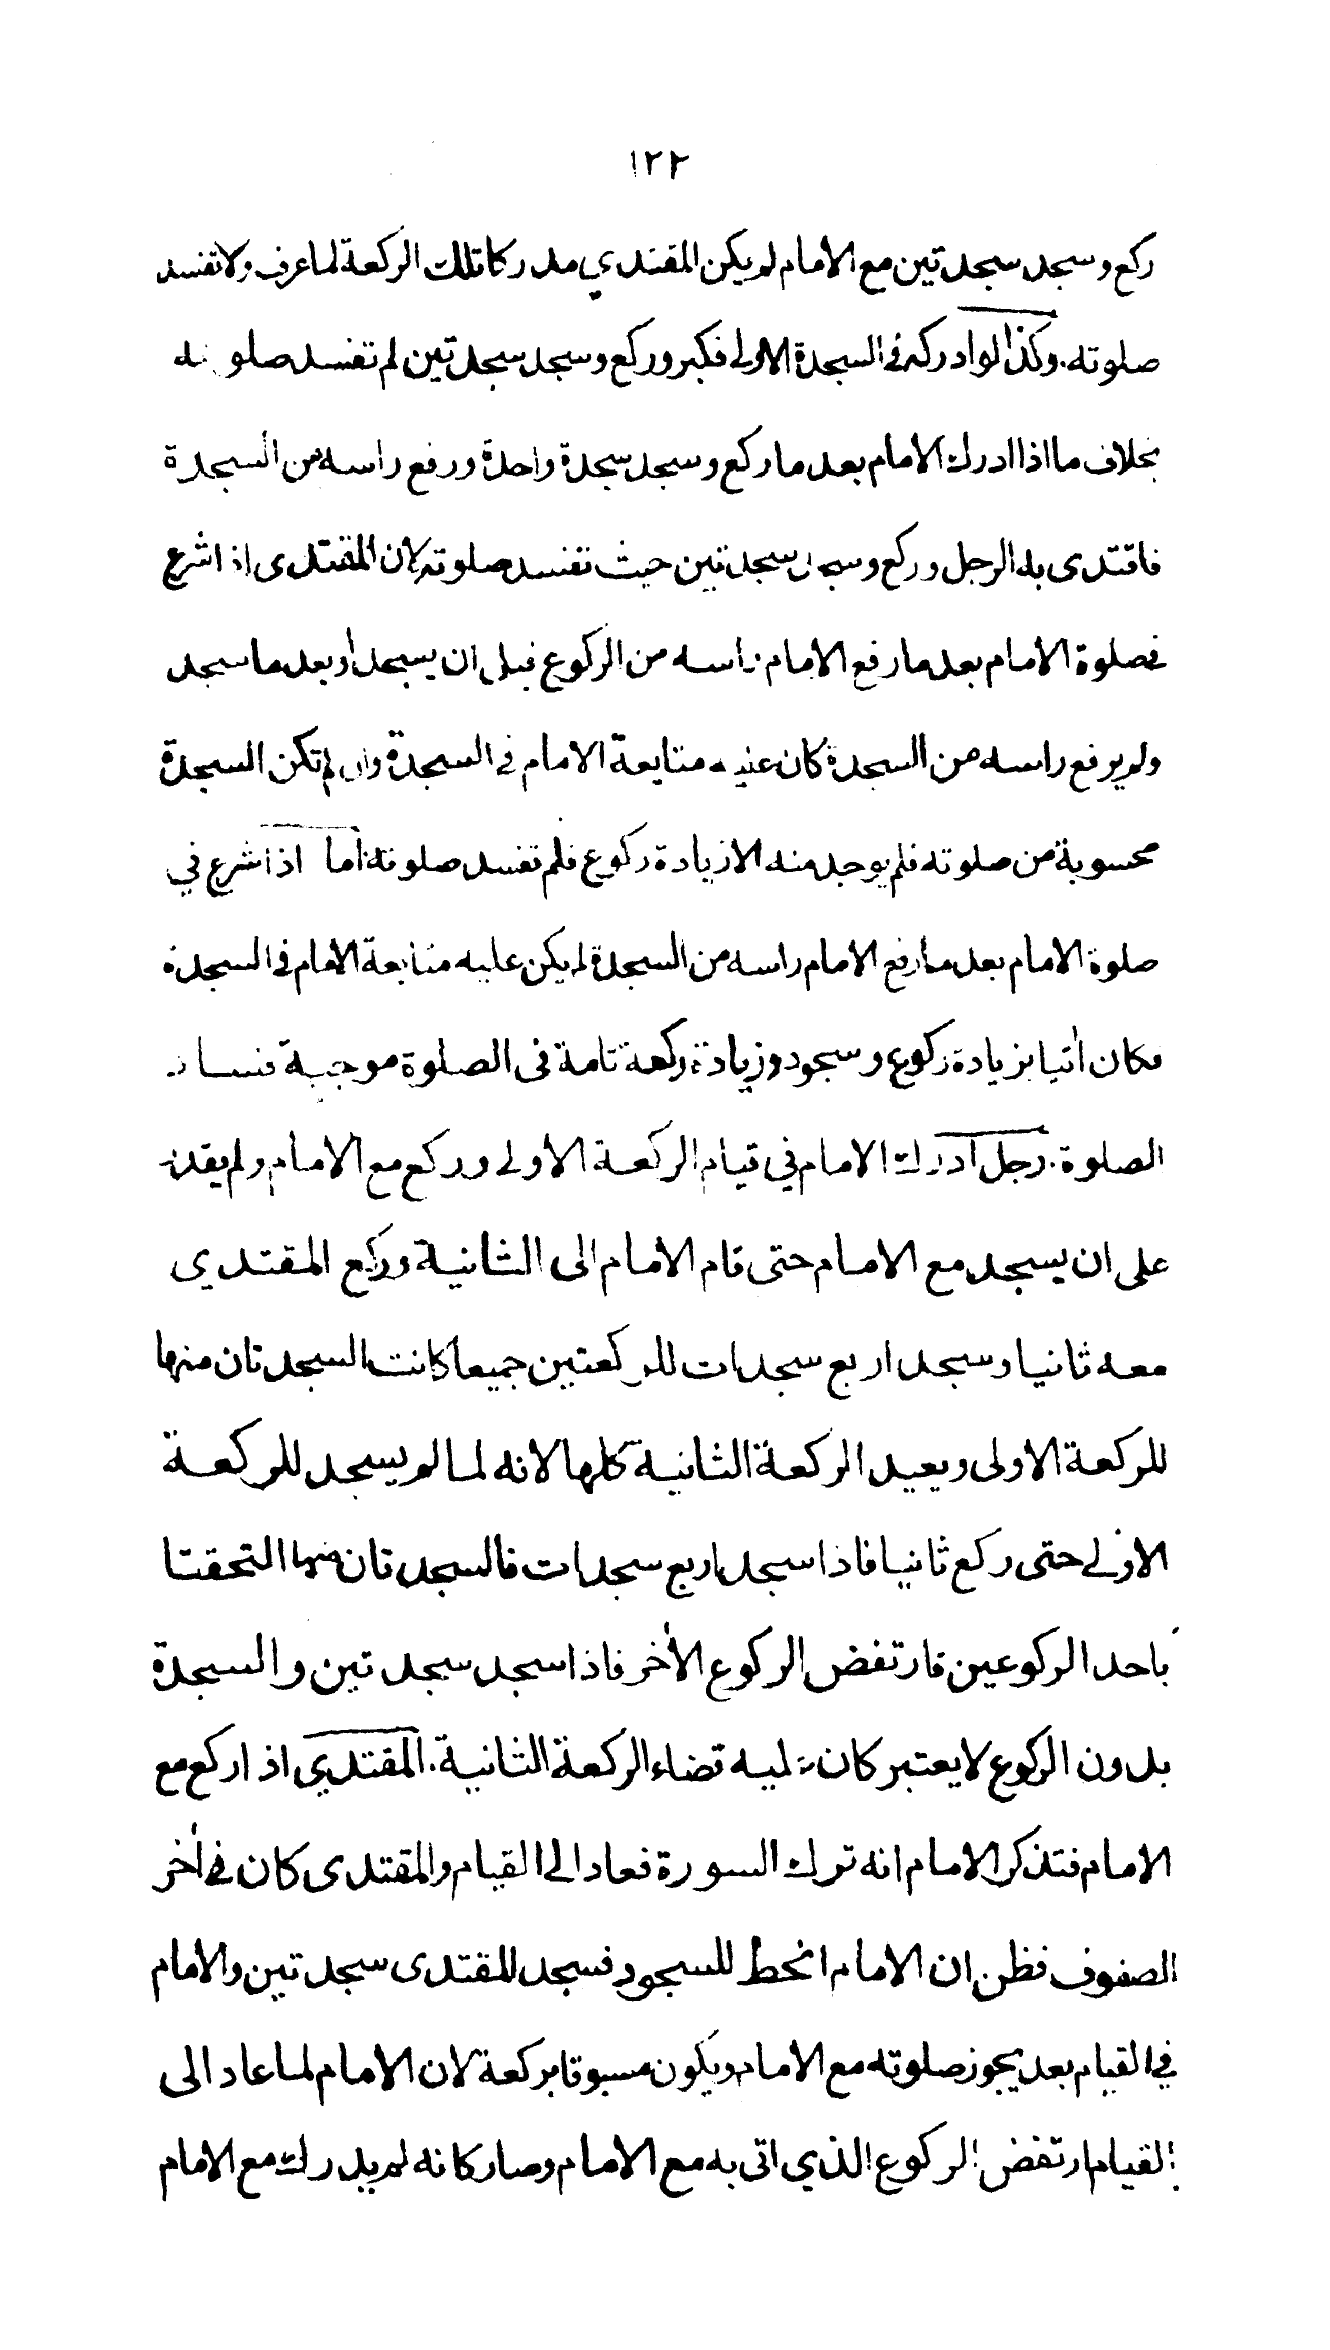 ١٢٢
ركع وسجد سجدتين مع الامام لم يكن المقتدي مدركا تلك الركعة لما عرف ولا تفسد
صلوته. وكذا لو ادركه في السجدة الاولى فكبر وركع وسجد سجدتين لم تفسد صلوته
بخلاف ما اذا ادرك الامام بعد ما ركع وسجد سجدة واحدة ورفع راسه من السجدة
فاقتدى به الرجل وركع وسجد سجدتين حيث تفسد صلوته لان المقتدى اذا شرع
في صلوة الامام بعد ما رفع الامام راسه من الركوع قبل ان يسجد او بعد ما سجد
ولم يرفع راسه من السجدة كان عليه متابعة الامام في السجدة وان لم تكن السجدة
محسوبة من صلوته فلم يوجد منه الا زيادة ركوع فلم تفسد صلوته اما اذا شرع في
صلوة الامام بعد ما رفع الامام راسه من السجدة لم يكن عليه متابعة الامام في السجدة
فكان اتيا بزيادة ركوع وسجود وزيادة ركعة تامة فى الصلوة موجبة فساد
الصلوة. رجل ادرك الامام في قيام الركعة الاولى وركع مع الامام ولم يقدر
على ان يسجد مع الامام حتى قام الامام الى الثانية وركع المقتدي
معه ثانيا وسجد اربع سجدات للركعتين جميعا كانت السجدتان منها
للركعة الاولى ويعيد الركعة الثانية كلها لانه لما لم يسجد للركعة
الاولى حتى ركع ثانيا فاذا سجد اربع سجدات فالسجدتان منها التحقتا
باحد الركوعين فارتفض الركوع الأخر فاذا سجد سجدتين والسجدة
بدون الركوع لا يعتبر كان عليه قضاء الركعة الثانية. المقتدي اذا ركع مع
الامام فتذكر الامام انه ترك السورة فعاد الى القيام والمقتدى كان في أخر
الصفوف فظن ان الامام انحط للسجود فسجد للمقتدى سجدتين والامام
في القيام بعد يجوز صلوته مع الامام ويكون مسبوقا بركعة لان الامام لما عاد الى
القيام ارتفض الركوع الذي اتى به مع الامام وصار كانه لم يدرك مع الامام